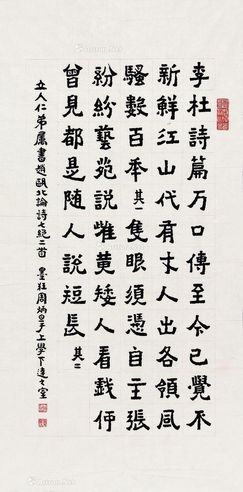 李杜詩篇万口傳至今已覺不
新鮮江山代有才人出各領風
騷數百年其一隻眼須憑自主張
紛紛藝苑說雌黃矮人看戲何
曾見都是随人說短長其二
立人仁弟属書趙甌北論詩七絶二首 墨狂周炳于上學下達之室